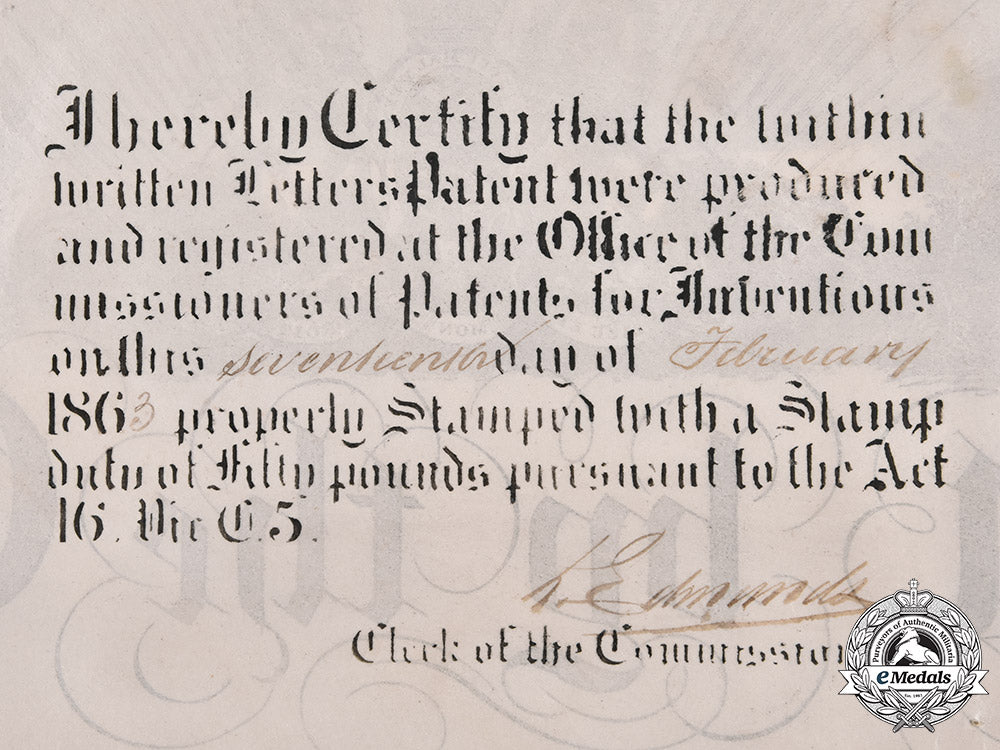 I hereby Certify that the within
written Letters Patent were produced
and registered at the Office of the Com
missioners of Patents for Inventions
on this seventeenth day of February
1863 properly Stamped with a Stamp
duty of Fifty pounds pursuant to the Act
16. Vic C. 5.
L. Edmunds
Clerk of the Commission
Purveyors of Authentic Militaria
eMedals